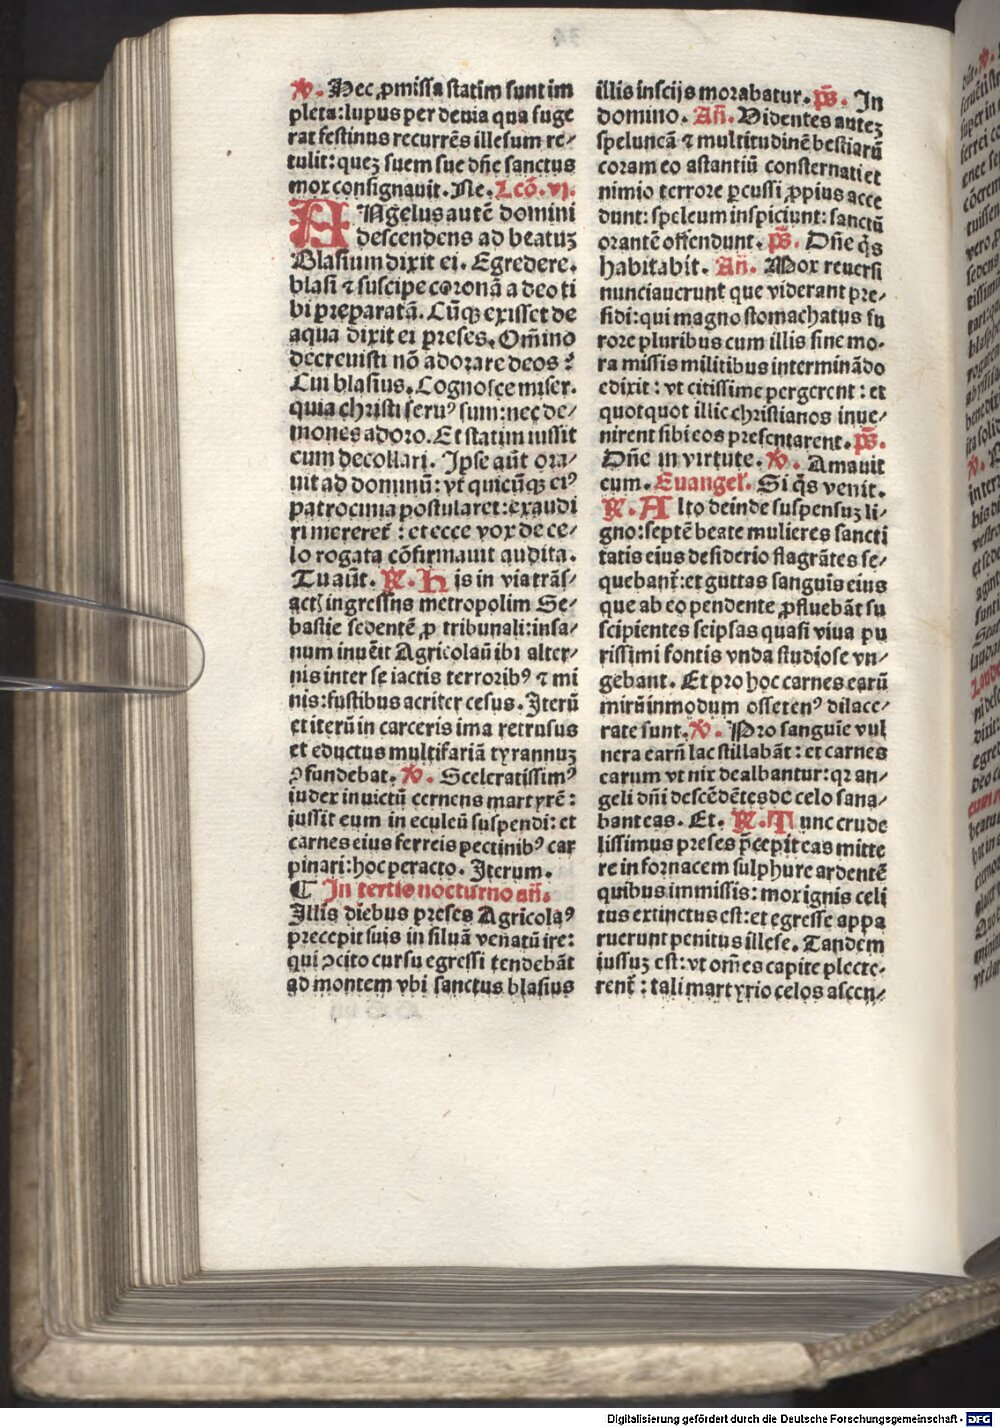 ℣. Hec ꝓmissa statim sunt im
pleta: lupus per deuia qua fuge
rat festinus recurrēs illesum re⸗
tulit: quez suem sue dn̄e sanctus
mox consignauit. Ne. Lcō. vj.
ANgelus autē domini
descendens ad beatuz
Blasium dixit ei. Egredere.
blasi ⁊ suscipe coronā a deo ti
bi preparatā. Cūqꝫ exisset de
aqua dixit ei preses. Om̄ino
decreuisti nō adorare deos?
Cui blasius. Cognosce miser.
quia christi seruꝰ sum: nec de⸗
mones adoro. Et statim iussit
eum decollari. Ipse aūt ora⸗
uit ad dominū: vt quicūqꝫ eiꝰ
patrocinia postularet: exaudi
ri mereret᷑: et ecce vox de ce⸗
lo rogata cōfirmauit audita.
Tu aūt. ℟. His in via trās⸗
actꝭ ingressus metropolim Se⸗
bastie sedentē ꝓ tribunali: insa⸗
num inuēit Agricolaū ibi alter⸗
nis inter se iactis terroribꝰ ⁊ mi
nis: fustibus acriter cesus. Iterū
et iterū in carceris ima retrusus
et eductus multifariā tyrannuz
ꝯfundebat. ℣. Sceleratissimꝰ
iudex inuictū cernens martyrē:
iussit eum in eculeū suspendi: et
carnes eius ferreis pectinibꝰ car
pinari: hoc peracto. Iterum.
¶ In tertio nocturno an̄.
Illis diebus preses Agricolaꝰ
precepit suis in siluā venatū ire:
qui ꝯcito cursu egressi tendebāt
ad montem vbi sanctus blasius
illis inscijs morabatur. ps̄. In
domino. An̄. Videntes autez
speluncā ⁊ multitudinē bestiarū
coram eo astantiū consternati et
nimio terrore ꝑcussi ꝓpius acce
dunt: speleum inspiciunt: sanctū
orantē offendunt. ps̄. Dn̄e q̄s
habitabit. An̄. Mox reuersi
nunciauerunt que viderant pre⸗
sidi: qui magno stomachatus fu
rore pluribus cum illis sine mo⸗
ra missis militibus interminādo
edixit: vt citissime pergerent: et
quotquot illic christianos inue⸗
nirent sibi eos presentarent. ps̄.
Dn̄e in virtute. ℣. Amauit
eum. Euangel᷑. Si q̄s venit.
℟. Alto deinde suspensuz li⸗
gno: septē beate mulieres sancti
tatis eius desiderio flagrātes se⸗
quebant᷑: et guttas sanguīs eius
que ab eo pendente ꝓfluebāt su
scipientes seipsas quasi viua pu
rissimi fontis vnda studiose vn⸗
gebant. Et pro hoc carnes earū
mirū inmodum osseten᷒ dilace⸗
rate sunt. ℣. Pro sanguīe vul
nera earū lac stillabāt: et carnes
earum vt nix dealbantur: qꝛ an⸗
geli dn̄i descēdētes de celo sana⸗
bant eas. Et. ℟. Tunc crude
lissimus preses p̄cepit eas mitte
re in fornacem sulphure ardentē
quibus immissis: mox ignis celi
tus extinctus est: et egresse appa
ruerunt penitus illese. Tandem
iussuz est: vt om̄es capite plecte⸗
rent᷑: tali martyrio celos ascen⸗
Digitalisierung gefördert durch die Deutsche Forschungsgemeinschaft - DFG